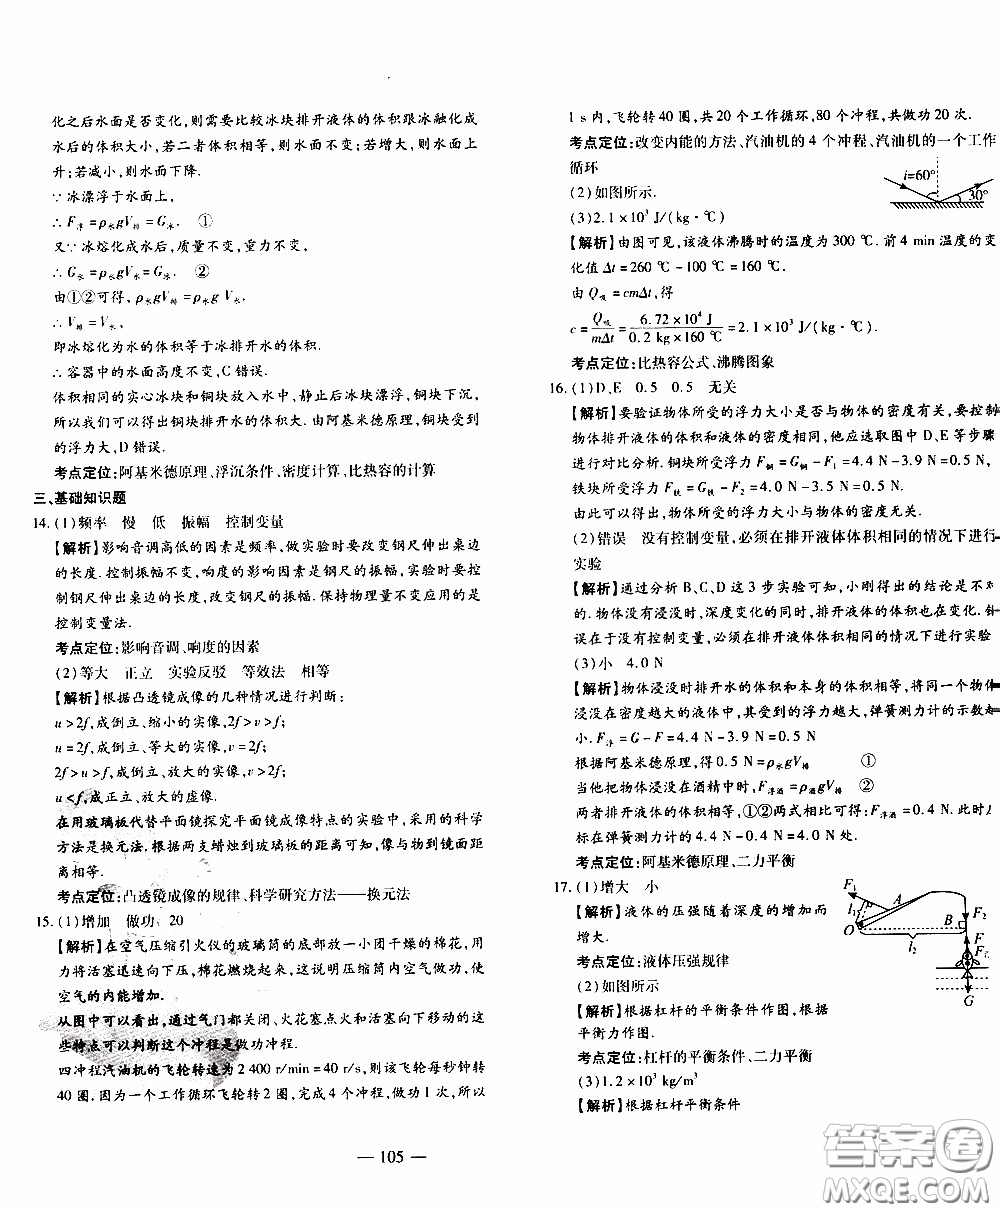 化之后水面是否变化,则需要比较冰块排开液体的体积跟冰融化成
水后的体积大小,若二者体积相等,则水面不变;若增大,则水面上
升;若减小,则水面下降.
∵冰漂浮于水面上,
∴F浮=ρ水gV排=G冰. ①
又∵冰熔化成水后,质量不变,重力不变,
∴G水=ρ水gV水=G冰. ②
由①②可得,ρ水gV排=ρ水g V水.
∴V排=V水,
即冰熔化为水的体积等于冰排开水的体积.
∴容器中的水面高度不变,C错误.
体积相同的实心冰块和铜块放入水中,静止后冰块漂浮,铜块下沉,
所以我们可以得出铜块排开水的体积大.由阿基米德原理,铜块受到
的浮力大,D错误.
考点定位:阿基米德原理、浮沉条件、密度计算、比热容的计算
三、基础知识题
14.(1)频率 慢 低 振幅 控制变量
【解析】影响音调高低的因素是频率,做实验时要改变钢尺伸出桌边
的长度.控制振幅不变,响度的影响因素是钢尺的振幅,实验时要控
制钢尺伸出桌边的长度,改变钢尺的振幅.保持物理量不变应用的是
控制变量法.
考点定位:影响音调、响度的因素
(2)等大 正立 实验反驳 等效法 相等
【解析】根据凸透镜成像的几种情况进行判断:
u>2f,成倒立、缩小的实像,2f>v>f;
u=2f,成倒立、等大的实像,v=2f;
2f>u>f,成倒立、放大的实像,v>2f;
u<f,成正立、放大的虚像.
在用玻璃板代替平面镜探究平面镜成像特点的实验中,采用的科学
方法是换元法.根据两支蜡烛到玻璃板的距离可知,像与物到镜面距
离相等.
考点定位:凸透镜成像的规律、科学研究方法——换元法
15.(1)增加 做功 20
【解析】在空气压缩引火仪的玻璃筒的底部放一小团干燥的棉花,用
力将活塞迅速向下压,棉花燃烧起来,这说明压缩筒内空气做功,使
空气的内能增加.
从图中可以看出,通过气门都关闭、火花塞点火和活塞向下移动的这
些特点可以判断这个冲程是做功冲程.
四冲程汽油机的飞轮转速为2 400 r/min=40 r/s,则该飞轮每秒钟转
40圈.因为一个工作循环飞轮转2圈,完成4个冲程,做功1次,所以
— 105 —
1 s内,飞轮转40圈,共20个工作循环,80个冲程,共做功20次.
考点定位:改变内能的方法、汽油机的4个冲程、汽油机的一个工作
循环
(2)如图所示.
i=60°
30°
(3)2.1×10³ J/(kg·℃)
【解析】由图可见,该液体沸腾时的温度为300 ℃.前4 min温度的变
化值Δt=260 ℃-100 ℃=160 ℃.
由Q吸=cmΔt,得
c=Q吸/mΔt=6.72×10⁴ J/0.2 kg×160℃=2.1×10³ J/(kg·℃).
考点定位:比热容公式、沸腾图象
16.(1)D、E 0.5 0.5 无关
【解析】要验证物体所受的浮力大小是否与物体的密度有关,要控制
物体排开液体的体积和液体的密度相同,他应选取图中D、E等步骤
进行对比分析.铜块受到的浮力F铜=G铜-F1=4.4 N-3.9 N=0.5 N,
铁块所受的浮力F铁=G铁-F2=4.0 N-3.5 N=0.5 N.
由此可以得出,物体所受的浮力大小与物体的密度无关.
(2)错误 没有控制变量,必须在排开液体体积相同的情况下进行
实验
【解析】通过分析B、C、D这3步实验可知,小刚得出的结论是不对
的.物体有浸没时,深度变化的同时,排开液体的体积也在变化.错
误在于没有控制变量,必须在排开液体体积相同的情况下进行实验
(3)小 4.0 N
【解析】物体浸没时排开水的体积和本身的体积相等,将同一个物体
浸没在密度越大的液体中,其受到的浮力越大,弹簧测力计的示数越
小.F浮=G-F=4.4 N-3.9 N=0.5 N
根据阿基米德原理,得0.5 N=ρ水gV排 ①
当他把物体浸没在酒精中时,F浮酒=ρ酒gV排 ②
两者排开液体的体积相等,①②两式相比可得:F浮酒=0.4 N.此时
标在弹簧测力计的4.4 N-0.4 N=4.0 N处.
考点定位:阿基米德原理、二力平衡
17.(1)增大 小
【解析】液体的压强随着深度的增加而
增大.
考点定位:液体压强规律
(2)如图所示
【解析】根据杠杆的平衡条件作图,根据
平衡力作图.
考点定位:杠杆的平衡条件、二力平衡
(3)1.2×10³ kg/m³
【解析】根据杠杆平衡条件
F1
l1
A
O
B
l2
F2
F
G
答案卷
MXQE.COM